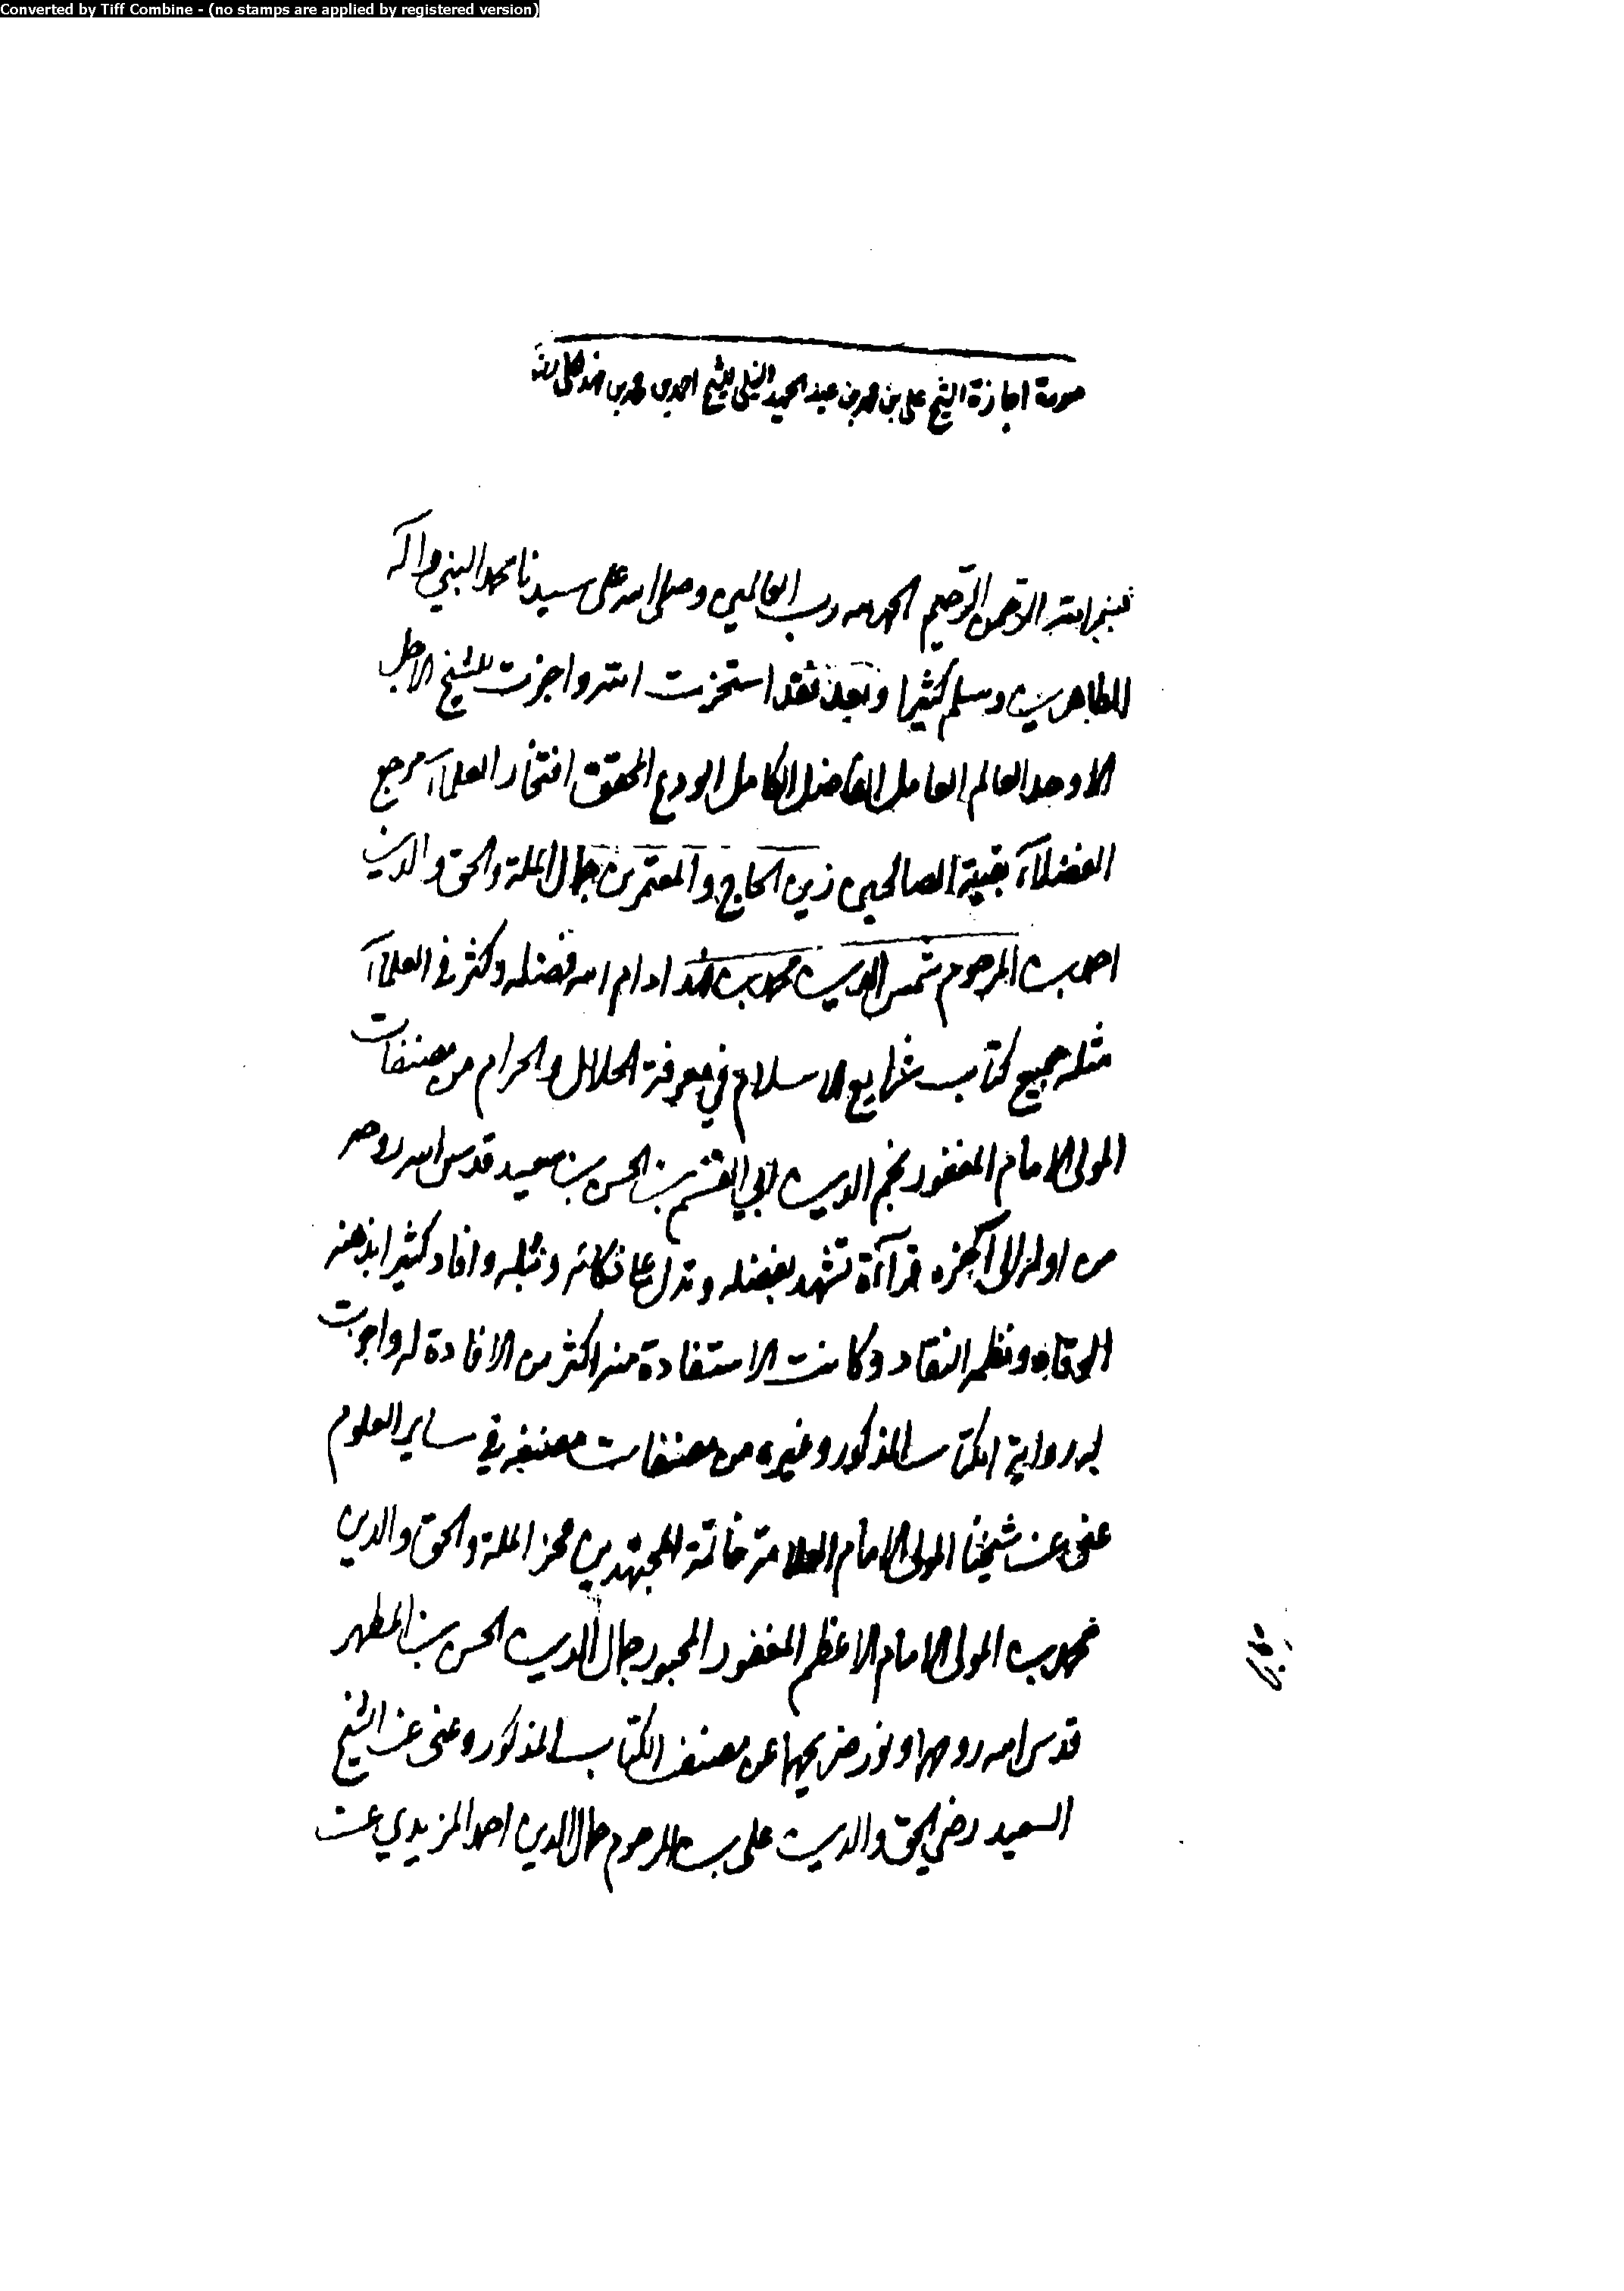 Converted by Tiff Combine - (no stamps are applied by registered version)
صورة اجازة الشيخ علي بن محمد بن عبد الحميد النيلي للشيخ احمد بن محمد بن فهد الحلي
بسم الله الرحمن الرحيم الحمد لله رب العالمين وصلى الله على سيدنا محمد النبي وآله
الطاهرين وسلم كثيرا وبعد فقد استخرت الله واجزت للشيخ الاجل
الاوحد العالم العامل الفاضل الكامل الورع المحقق افتخار العلمآء مرجع
الفضلآء بقية الصالحين زين الحاج والمعتمرين جمال الملة والحق والدين
احمد بن المرحوم شمس الدين محمد بن فهد ادام الله فضله وكثر في العلمآء
مثله جميع كتاب شرايع الاسلام في معرفة الحلال والحرام من مصنفات
المولى الامام المغفور نجم الدين ابي القسم بن الحسن بن سعيد قدس الله روحه
من اوله الى آخره قرآءة تشهد بفضله وتدل على ذكائه ونبله وافاد كثيرا بذهنه
الوقاد ونظمه النقاد وكانت الاستفادة منه اكثر من الافادة له واجزت
له رواية الكتاب المذكور وغيره من مصنفات مصنفه في ساير العلوم
عني عن شيخنا المولى الامام العلامة خاتمة المجتهدين فخر الملة والحق والدين
محمد بن المولى الامام الاعظم المغفور المحبور جمال الدين الحسن بن المطهر
قدس الله روحهما ونور ضريحهما عن مصنف الكتاب المذكور وعني عن الشيخ
السعيد رضي الحق والدين علي بن المرحوم جمال الدين احمد المزيدي عن